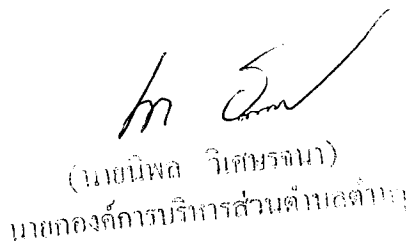 (นายนิพล วิเศษรจนา)
นายกองค์การบริหารส่วนตำบล